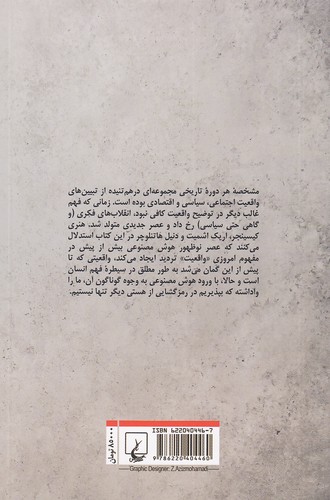 مشخصهٔ هر دورهٔ تاریخی مجموعه‌ای درهم‌تنیده از تبیین‌های
واقعیت اجتماعی، سیاسی و اقتصادی بوده است. زمانی که فهم
غالب دیگر در توضیح واقعیت کافی نبود، انقلاب‌های فکری (و
گاهی حتی سیاسی) رخ داد و عصر جدیدی متولد شد. هنری
کیسینجر، اریک اشمیت و دنیل هاتنلوچر در این کتاب استدلال
می‌کنند که عصر نوظهور هوش مصنوعی بیش از پیش در
مفهوم امروزی «واقعیت» تردید ایجاد می‌کند، واقعیتی که تا
پیش از این گمان می‌شد به طور مطلق در سیطرهٔ فهم انسان
است و حالا، با ورود هوش مصنوعی به وجوه گوناگون آن، ما را
واداشته که بپذیریم در رمزگشایی از هستی دیگر تنها نیستیم.
۸۵۰۰۰ تومان
ISBN 622040446-7
9 786220 404460
Graphic Designer: Z.Azizmohamadi